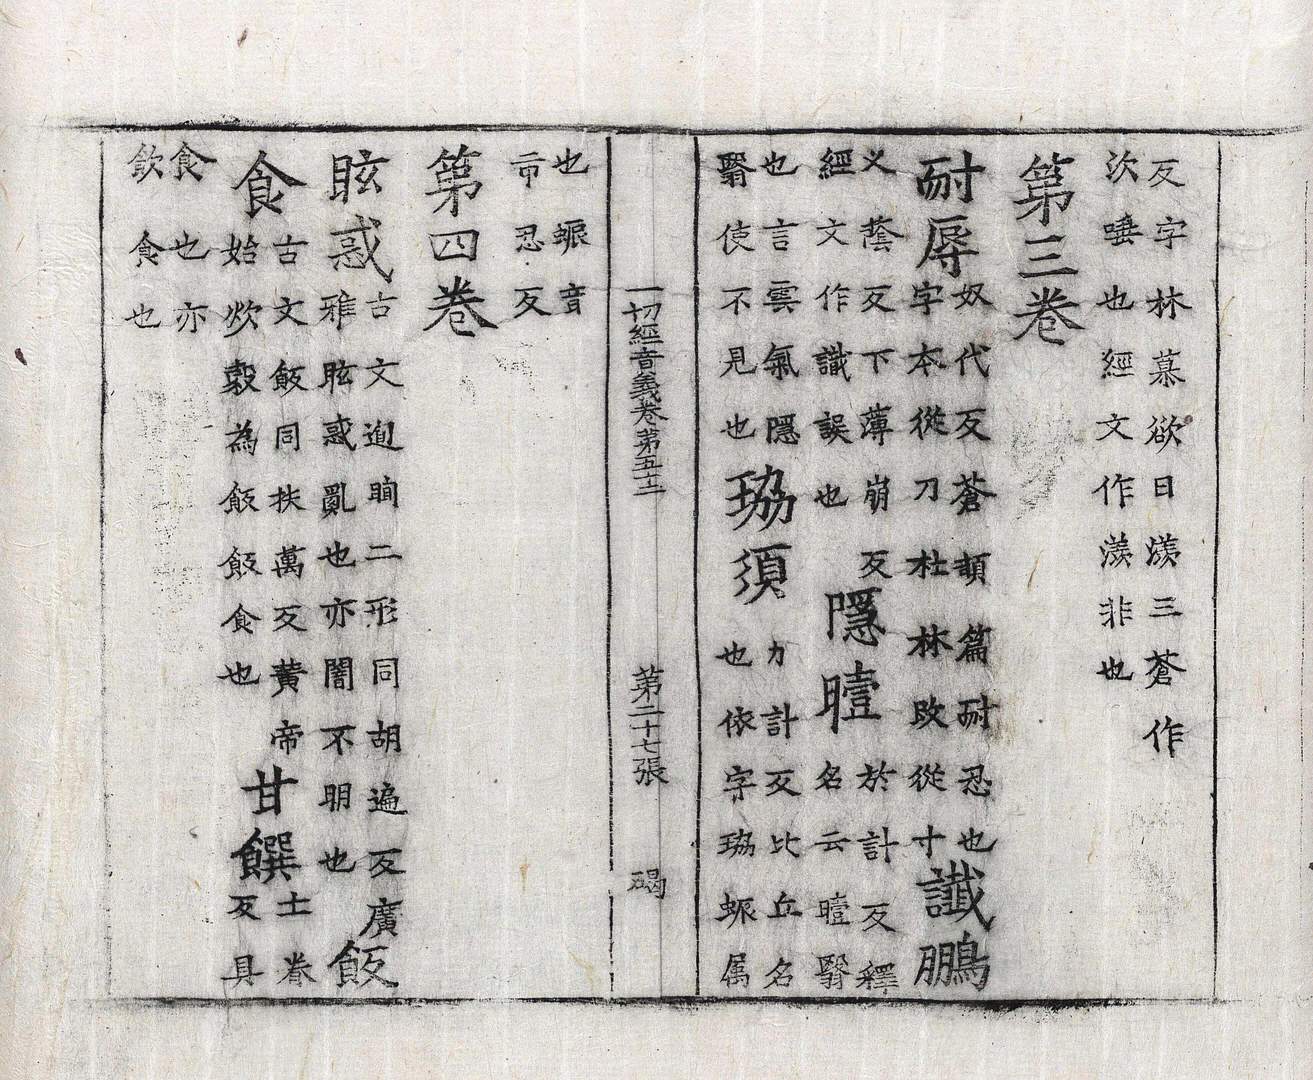 反字林慕欲曰羨三蒼作
㳄唾也經文作羨非也
第三卷
耐辱
奴代反蒼頡篇耐忍也
字本從刀杜林改從寸
讖鵬
义蔭反下薄崩反
經文作識誤也
隱曀
於計反釋
名云曀翳
也言雲氣隱
翳使不見也
珕須
力計反比丘名
也依字珕蜄属
一切經音義卷第五十二 第二十七張 碣
也蜄音
市忍反
第四卷
眩惑
古文迿眴二形同胡遍反廣
雅眩惑亂也亦闇不明也
飯
食
古文飯同扶萬反黃帝
始炊穀為飯飯食也
甘饌
士眷
反具
食也亦
飲食也